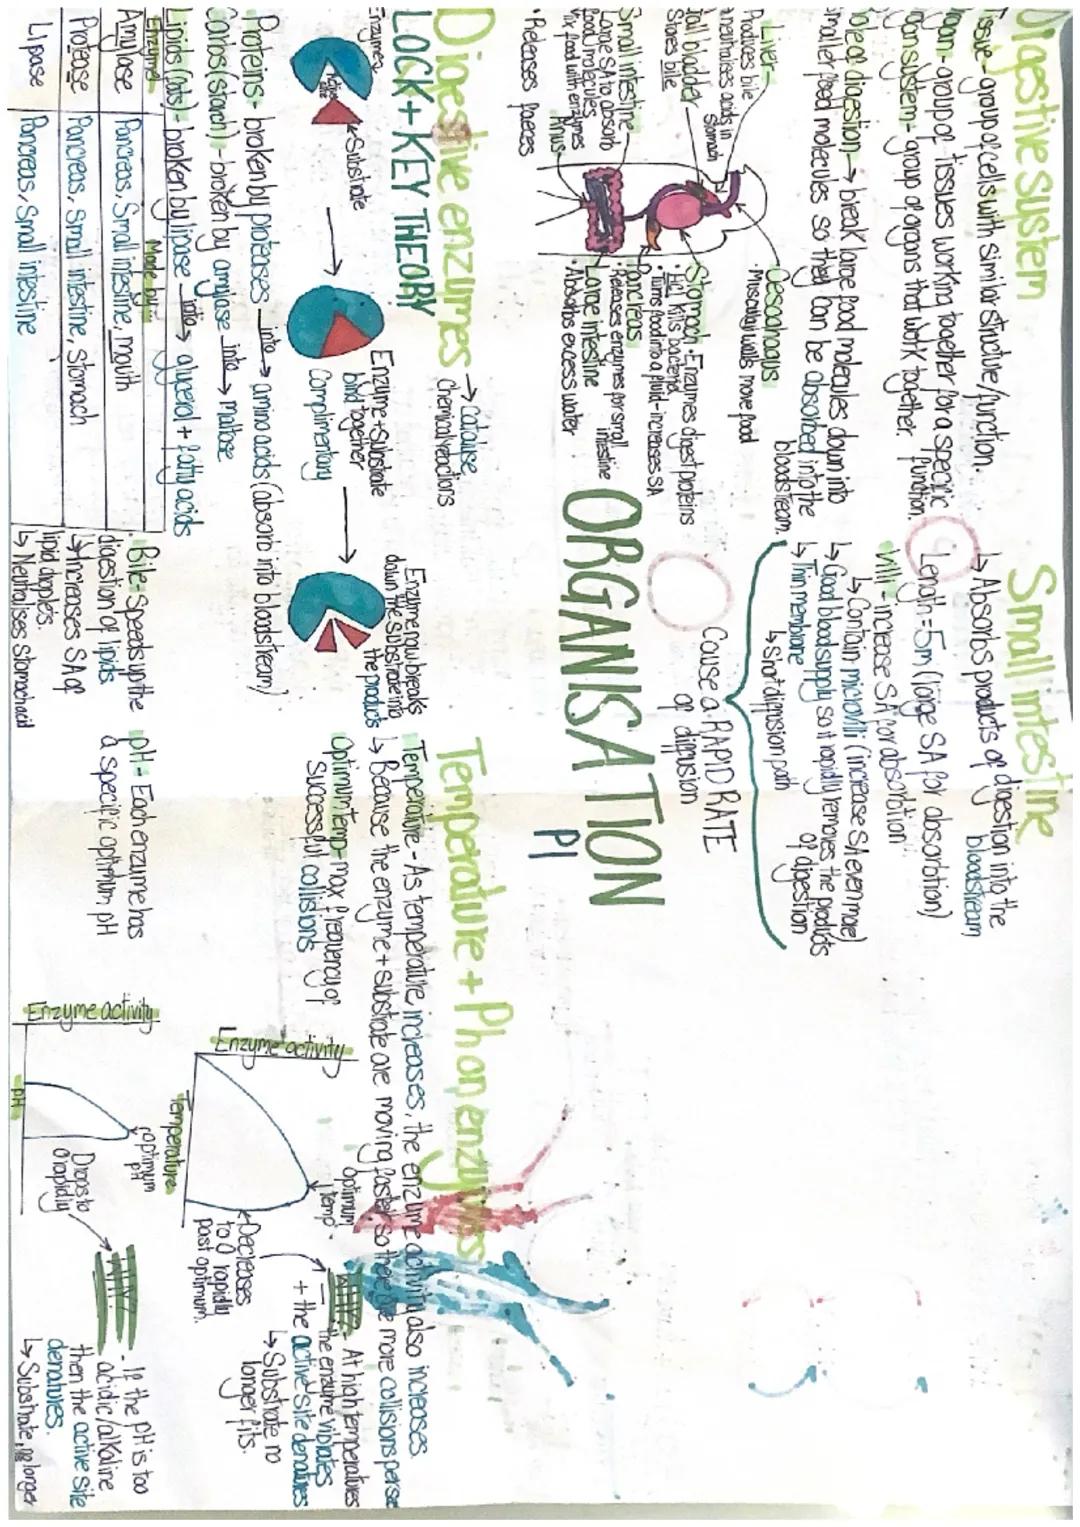 Digestive system
Tissue - group of cells with similar structure/function.
Organ - group of tissues working together for a specific function.
Organ system - group of organs that work together.
Role of digestion → break large food molecules down into
smaller food molecules so they can be absorbed into the
bloodstream.
Liver -
Produces bile
neutralises acids in
stomach
Gall bladder
Stores bile
Small intestine -
Large SA to absorb
food molecules
Mix food with enzymes
Anus
• Releases faeces
Oesophagus
• Muscular walls move food
Stomach - Enzymes digest proteins
• HCl kills bacteria
• Turns food into a fluid - increases SA
Pancreas
• Releases enzymes for small
intestine
Large intestine
• Absorbs excess water
Small intestine
↳ Absorbs products of digestion into the
bloodstream
Length = 5m (large SA for absorbtion)
Villi - increase SA for absorbtion
↳ Contain microvilli (increase SA even more)
↳ Good blood supply so it rapidly removes the products
of digestion
↳ Thin membrane
↳ Short diffusion path
Cause a RAPID RATE
of diffusion
ORGANISATION
P1
Digestive enzymes → catalyse
chemical reactions
LOCK + KEY THEORY
Enzyme
Active site
Substrate
Enzyme + substrate
bind together
Complimentary
Enzyme now breaks
down the substrate into
the products
Proteins - broken by proteases into → amino acids (absorb into bloodstream)
Carbs (starch) - broken by amylase into → maltose
Lipids (fats) - broken by lipase into → glycerol + fatty acids
Enzyme Made by...
Amylase Pancreas, Small intestine, mouth
Protease Pancreas, Small intestine, stomach
Lipase Pancreas, Small intestine
• Bile - Speeds up the
digestion of lipids.
↳ Increases SA of
lipid droplets.
↳ Neutralises stomach acid
Temperature + Ph on enzymes
Temperature - As temperature increases, the enzyme activity also increases.
↳ Because the enzyme + substrate are moving faster so there are more collisions per sec
Optimum temp - max frequency of
successful collisions
Enzyme activity
Temperature
optimum
temp.
Decreases
to 0 rapidly
past optimum.
WHY? - At high temperatures
the enzyme vibrates
+ the active site denatures
↳ Substrate no
longer fits.
pH - Each enzyme has
a specific optimum pH
Enzyme activity
pH
optimum
pH
Drops to
0 rapidly
WHY? - If the pH is too
acidic/alkaline
then the active site
denatures.
↳ Substrate no longer